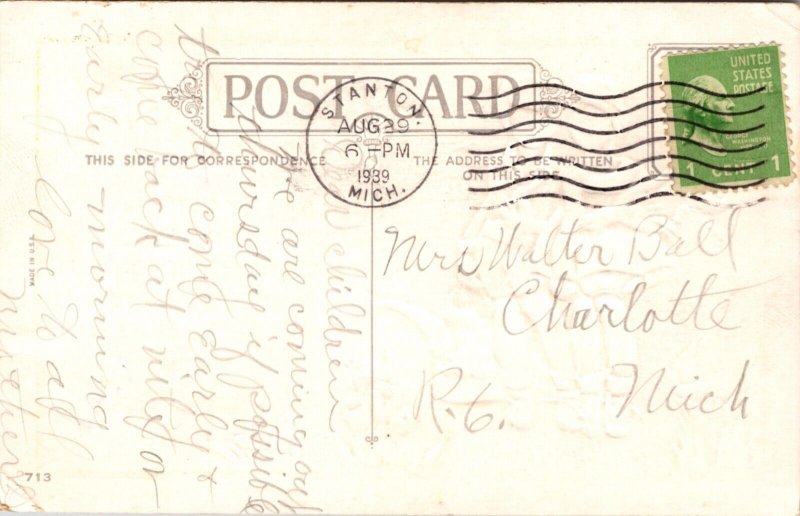 POST CARD
THIS SIDE FOR CORRESPONDENCE
THE ADDRESS TO BE WRITTEN
ON THIS SIDE
STANTON.
AUG 29
6 - PM
1939
MICH.
UNITED
STATES
POSTAGE
GEORGE
WASHINGTON
1 CENT 1
Mrs Walter Ball
Charlotte
R. 6. Mich
children
We are coming out
Thursday if possible
try to come early &
come back at nite or
early morning
love to all
mother
MADE IN U.S.A.
713